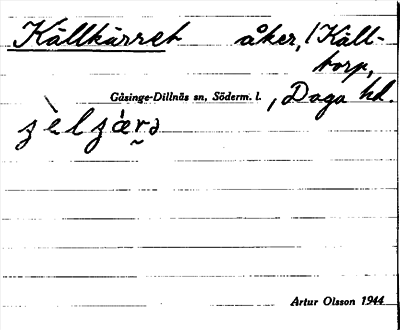 Källkärret åker, (Käll-
torp,
Gåsinge-Dillnäs sn, Söderm. l., Daga hd.
Artur Olsson 1944